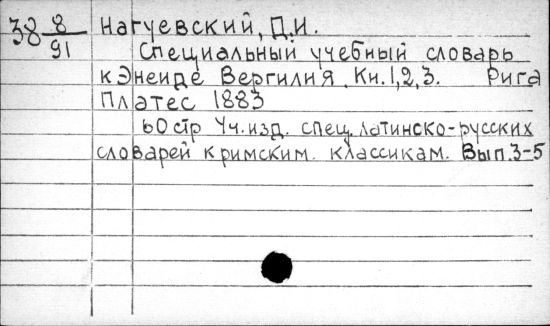 38 8/91 Нагуевский, Д.И.
Специальный учебный словарь
к Энеиде Вергилия. Кн.1,2,3. Рига
Платес 1883
60 стр Уч.изд. спец. латинско-русских
словарей к римским. классикам. Вып.3-5